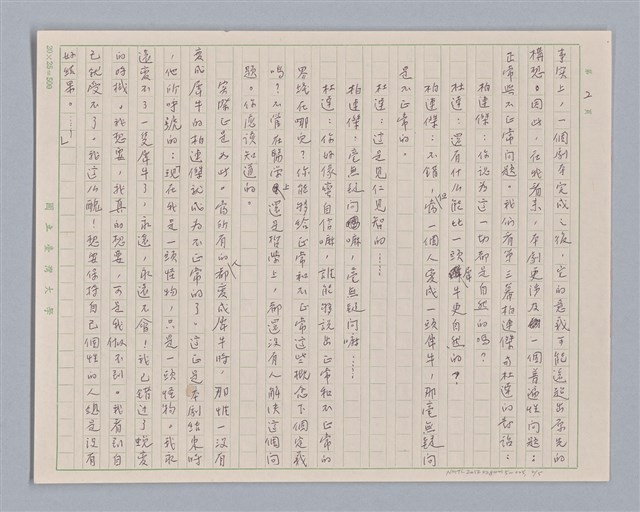 第 2 頁
事实上，一個劇本完成之後，它的意義可能遠超出原先的
構想。因此，在我看來，本劇更涉及一個普遍性問題：
正常與不正常問題。我們看第三幕柏連傑与杜達的對話：
柏連傑：你認為這一切都是自然的嗎？
杜達：還有什么能比一頭犀牛更自然的？
柏連傑：不錯，但當一個人变成一頭犀牛，那毫無疑问
是不正常的。
杜達：這是見仁見智的……
柏連傑：毫無疑问嘛，毫無疑问嘛……
杜達：你好像蛮自信嘛，誰能夠説出正常和不正常的
界线在哪兒？你能夠給正常和不正常這些概念下個定義
嗎？不管在醫学上還是哲学上，都還没有人解決這個问
題。你應該知道的。
实際正是如此。當所有的人都変成犀牛時，那惟一没有
変成犀牛的柏連傑就成为不正常的了。這正是本劇结束時
，他所呼號的：現在我是一頭怪物，只是一頭怪物。我永
遠変不了一隻犀牛了，永遠，永遠不會！我已錯过了蜕変
的时機，我想要，我真的想要，可是我做不到。我看到自
己就受不了。我這么醜！想要保持自己個性的人總是没有
好结果。……」
20×25＝500
國立臺灣大學